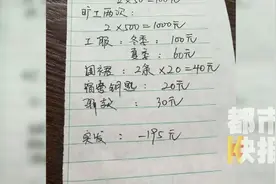 2×50=100元
旷工两次:
2×500=1000元
工服:冬季:100元
夏季:60元
围裙:2条×20=40元
宿舍钥匙:20元
捐款:30元
实发:-195元
都市快报